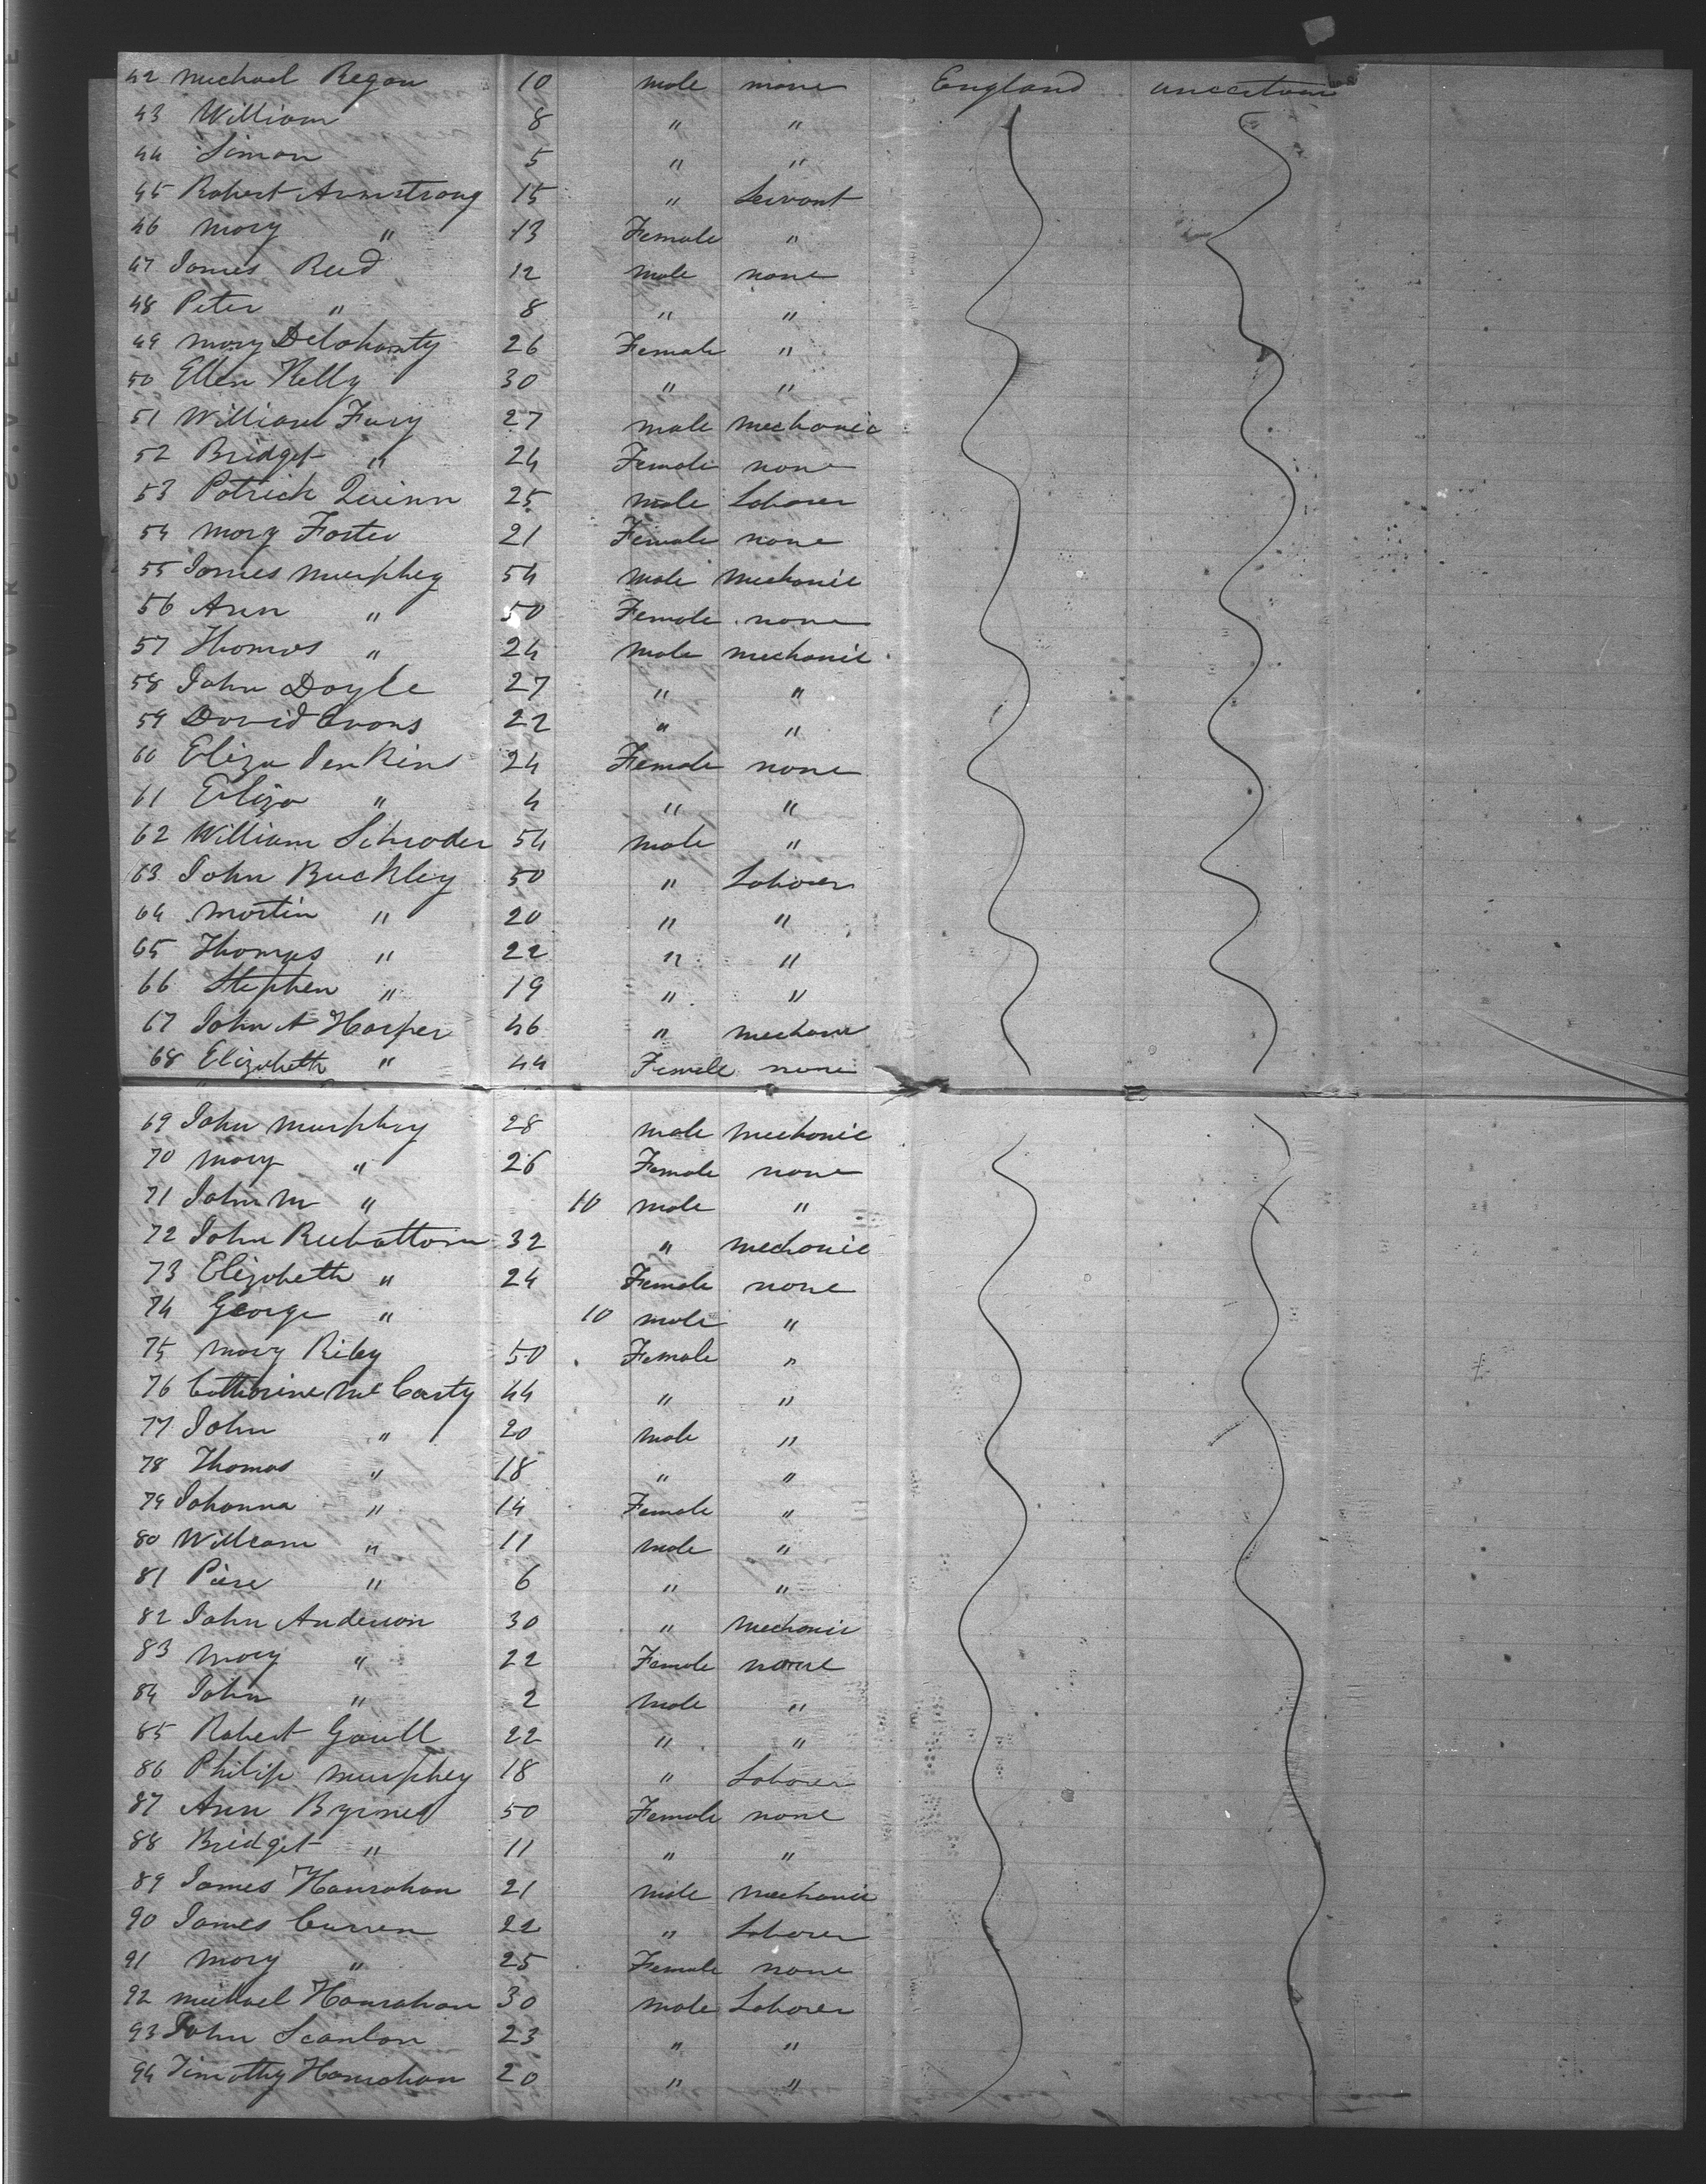 42 Michael Regan 10 male none England uncertain
43 William 8 " "
44 Simon 5 " "
45 Robert Armstrong 15 " Servant
46 Mary " 13 Female "
47 James Reed 12 male none
48 Peter " 8 " "
49 Mary Delohanty 26 Female "
50 Ellen Kelly 30 " "
51 William Fury 27 male mechanic
52 Bridget " 24 Female none
53 Patrick Quinn 25 male Laborer
54 Mary Foster 21 Female none
55 James Murphey 54 male mechanic
56 Ann " 50 Female none
57 Thomas " 24 male mechanic
58 John Doyle 27 " "
59 David Evans 22 " "
60 Eliza Jenkins 24 Female none
61 Eliza " 4 " "
62 William Schroder 54 male "
63 John Buckley 50 " Laborer
64 Martin " 20 " "
65 Thomas " 22 " "
66 Stephen " 19 " "
67 John A Harper 46 " mechanic
68 Elizabeth " 44 Female none
69 John Murphey 28 male mechanic
70 Mary " 26 Female none
71 John M " 10 male "
72 John Reebottom 32 " mechanic
73 Elizabeth " 24 Female none
74 George " 10 male "
75 Mary Riley 50 Female "
76 Catherine McCarty 44 " "
77 John " 20 male "
78 Thomas " 18 " "
79 Johanna " 14 Female "
80 William " 11 male "
81 Piere " 6 " "
82 John Anderson 30 " mechanic
83 Mary " 22 Female none
84 John " 2 male "
85 Robert Goull 22 " "
86 Philip Murphey 18 " Laborer
87 Ann Byrnes 50 Female none
88 Bridget " 11 " "
89 James Hanrahan 21 male mechanic
90 James Curren 22 " Laborer
91 Mary " 25 Female none
92 Michael Hanrahan 30 male Laborer
93 John Scanlon 23 " "
94 Timothy Hanrahan 20 " "